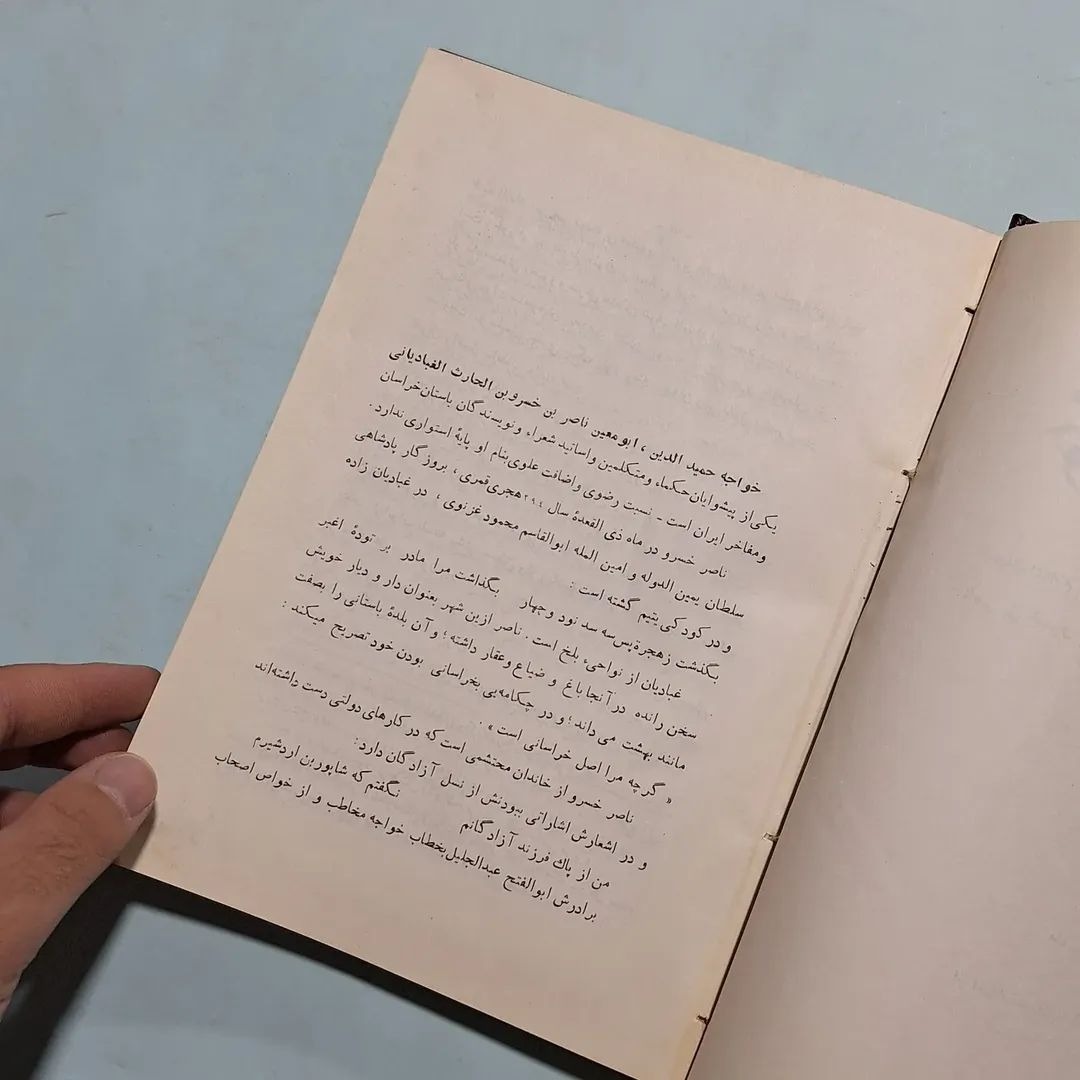 خواجه حمید الدین ، ابو معین ناصر بن خسرو بن الحارث القبادیانی
یکی از پیشوایان حکماء ومتکلمین واساتید شعراء ونویسندگان باستان خراسان
ومفاخر ایران است - نسبت رضوی واضافت علوی بنام او پایهٔ استواری ندارد .
ناصر خسرو در ماه ذی القعدهٔ سال ۳۹۴ هجری قمری ، بروزگار پادشاهی
سلطان یمین الدوله و امین المله ابوالقاسم محمود غزنوی ، در غبادیان زاده
و در کودکی یتیم گشته است :
بگذشت زهجرة پس سه سد نود وچهار بگذاشت مرا مادر بر تودهٔ اغبر
غبادیان از نواحی، بلخ است . ناصر ازین شهر بعنوان دار و دیار خویش
سخن رانده در آنجا باغ و ضیاع وعقار داشته ؛ و آن بلدهٔ باستانی را بصفت
مانند بهشت می داند ؛ و در چکامه یی بخراسانی بودن خود تصریح میکند :
« گرچه مرا اصل خراسانی است » .
ناصر خسرو از خاندان محتشمی است که در کارهای دولتی دست داشته اند
و در اشعارش اشاراتی ببودنش از نسل آزادگان دارد :
من از پاك فرزند آزادگانم نگفتم که شاپور بن اردشیرم
برادرش ابوالفتح عبدالجلیل بخطاب خواجه مخاطب و از خواص اصحاب